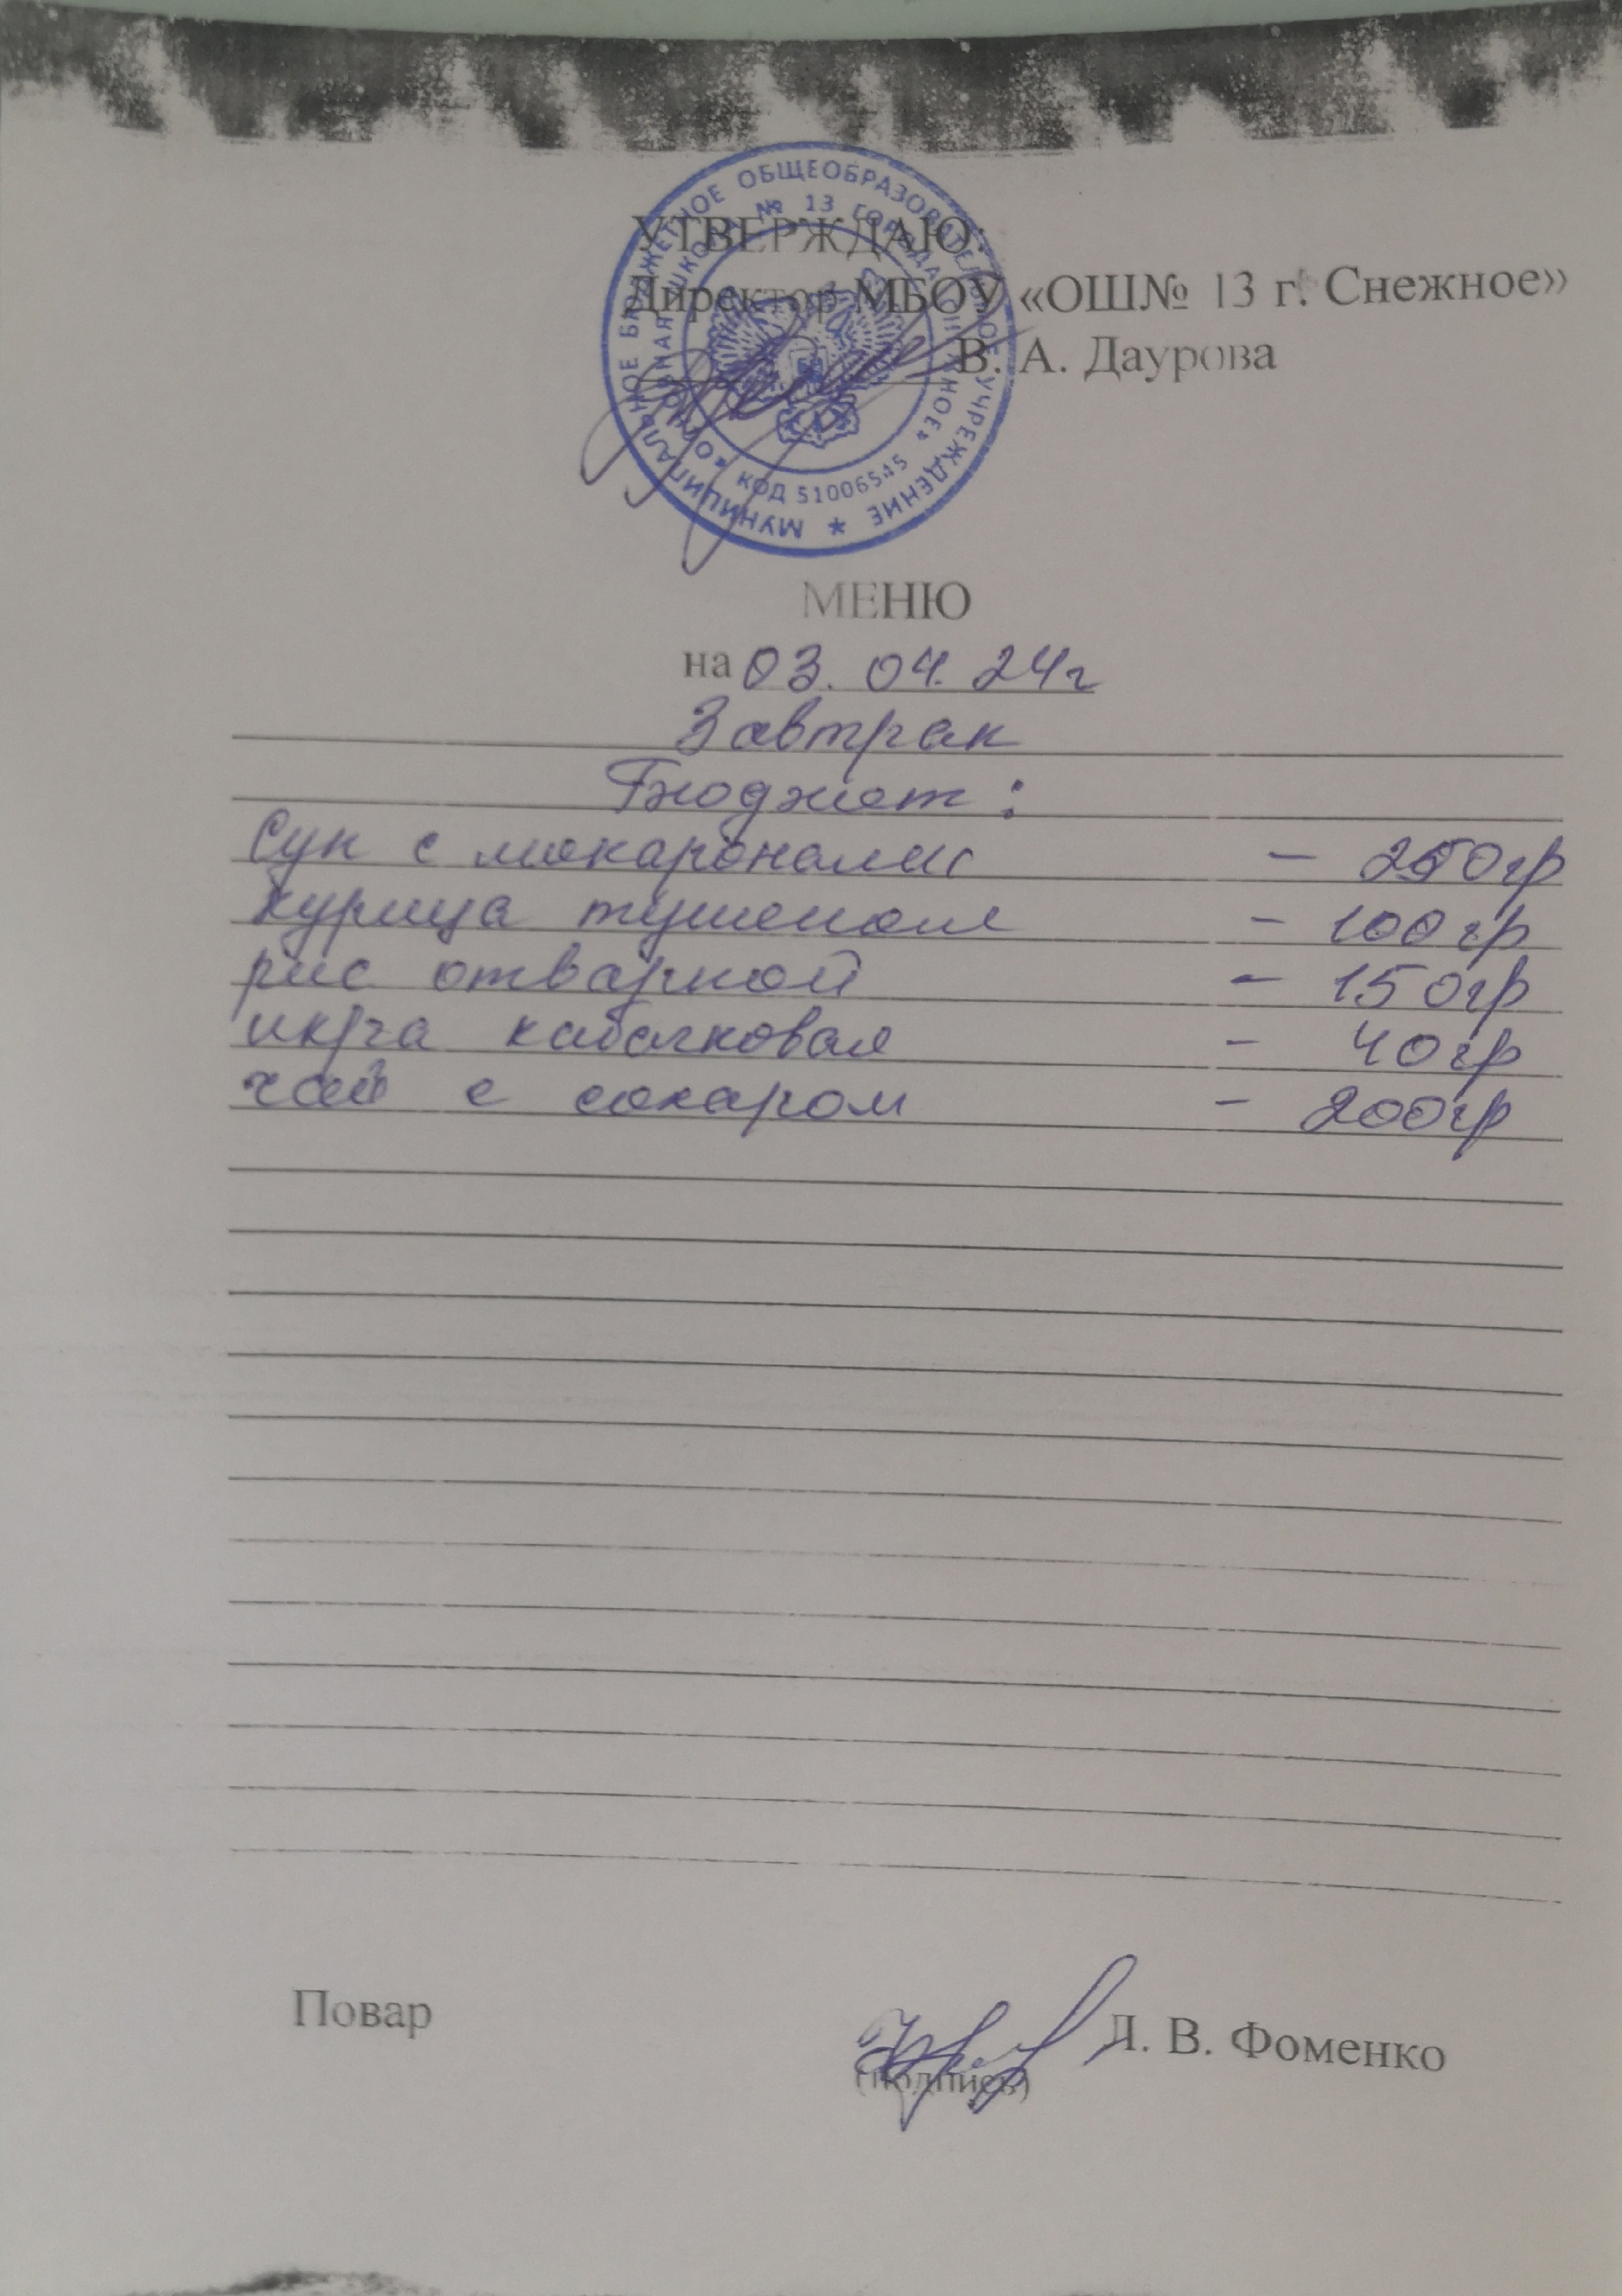 МУНИЦИПАЛЬНОЕ БЮДЖЕТНОЕ ОБЩЕОБРАЗОВАТЕЛЬНОЕ УЧРЕЖДЕНИЕ *
ШКОЛА № 13 ГОРОДА СНЕЖНОЕ»
КОД 51006545
УТВЕРЖДАЮ:
Директор МБОУ «ОШ№ 13 г. Снежное»
В. А. Даурова
МЕНЮ
на 03. 04. 24г
Завтрак
Бюджет:
Суп с макаронами - 250гр
курица тушеная - 100гр
рис отварной - 150гр
икра кабачковая - 40гр
чай с сахаром - 200гр
Повар В. Фоменко
(подпись)